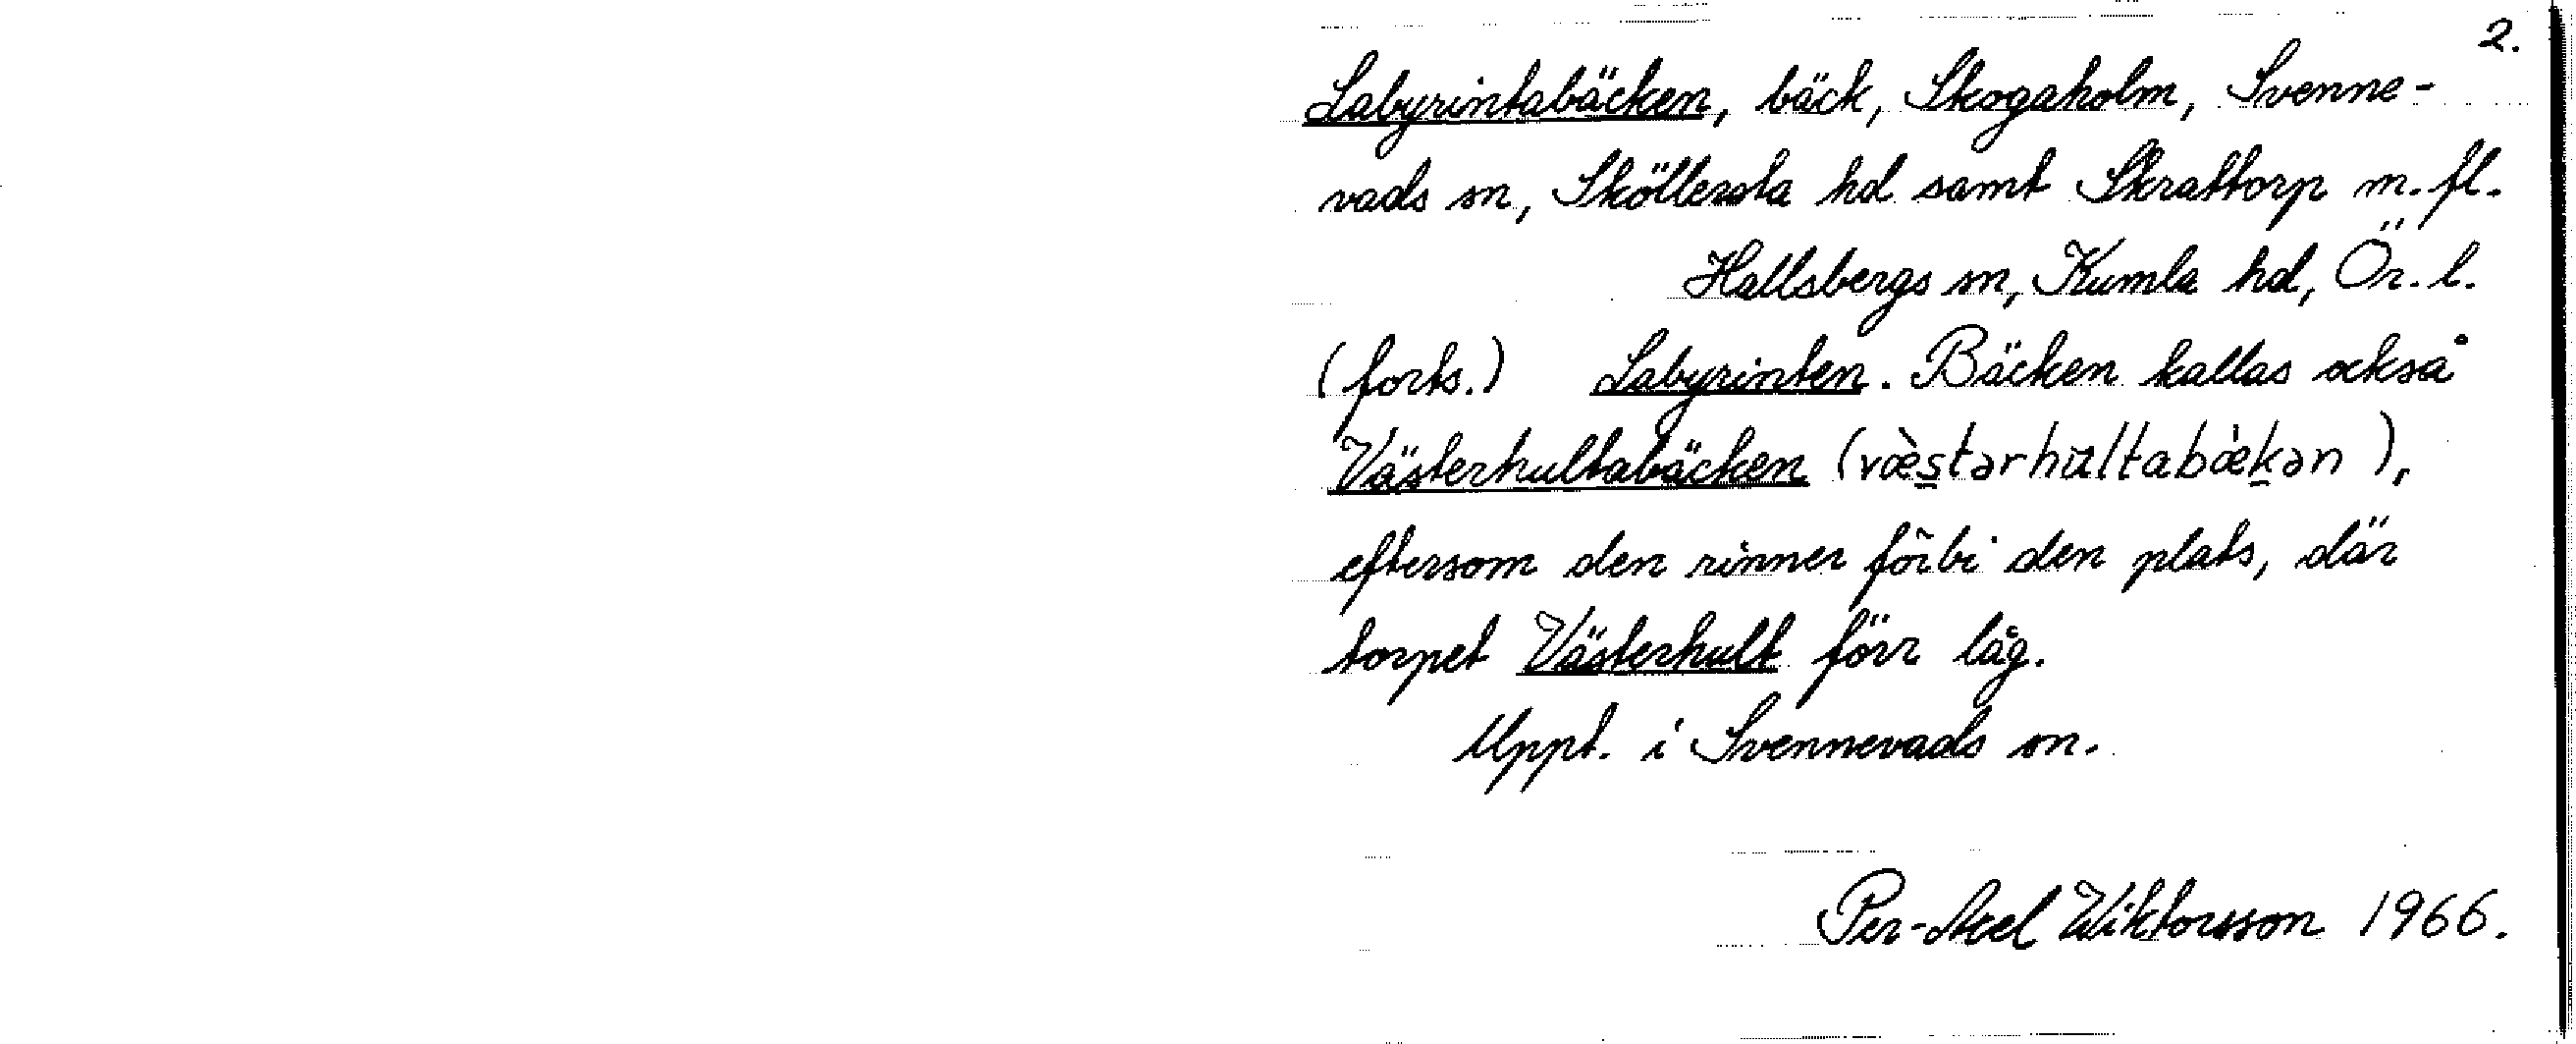 2.
Labyrintabäcken, bäck, Skogaholm, Svenne-
vads sn, Sköllersta hd samt Skrattorp m. fl.
Hallsbergs sn, Kumla hd, Ör. l.
(forts.) Labyrinten. Bäcken kallas också
Västerhultabäcken (væ̀s̲tərhultabæ̀k̲ən),
eftersom den rinner förbi den plats, där
torpet Västerhult förr låg.
Uppt. i Svennevads sn.
Per-Axel Wiktorsson 1966.